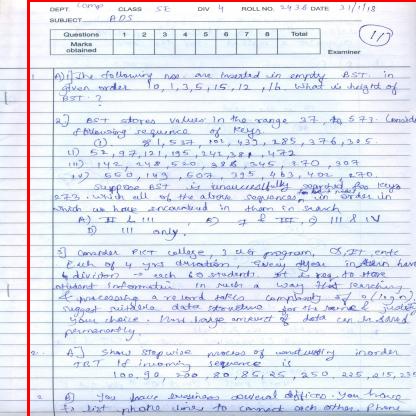 DEPT Comp CLASS SE DIV 4 ROLL NO. 2436 DATE 31/1/18
SUBJECT ADS
Questions 1 2 3 4 5 6 7 8 Total
Marks obtained
Examiner
1 A) 1] The following nos. are inserted in empty BST in
given order 10, 1, 3, 5, 15, 12, 16 What is height of
BST ?
2] BST stores values in the range 37 to 573. Consider
following sequence of keys
(I) 81, 537, 102, 439, 285, 376, 305
(II) 52, 97, 121, 195, 242, 381, 472
(III) 142, 248, 520, 386, 345, 270, 307
(IV) 550, 149, 507, 395, 463, 402, 270.
Suppose BST is unsuccessfully searched for key
273. which all of the above sequences in order in
which we have encountered in them in search
A) II & III I & III C) III & IV
D) III only.
3] Consider PICT college, 3 UG program,
Each of 4 yrs duration, Every year have
4 division & each 60 students. It is req. to store
student information in such a way that searching
& processing a record takes complexity of O(log n)
suggest suitable data structure for the same justify
your choice. Has large amount of data can be saved
permanently.
2. A] Show stepwise process of constructing inorder
TBT if incoming sequence is
100, 90, 200, 80, 85, 25, 250, 225, 215, 235
2 B] You have business several offices. You have
to list phone lines to connect each other. Phone